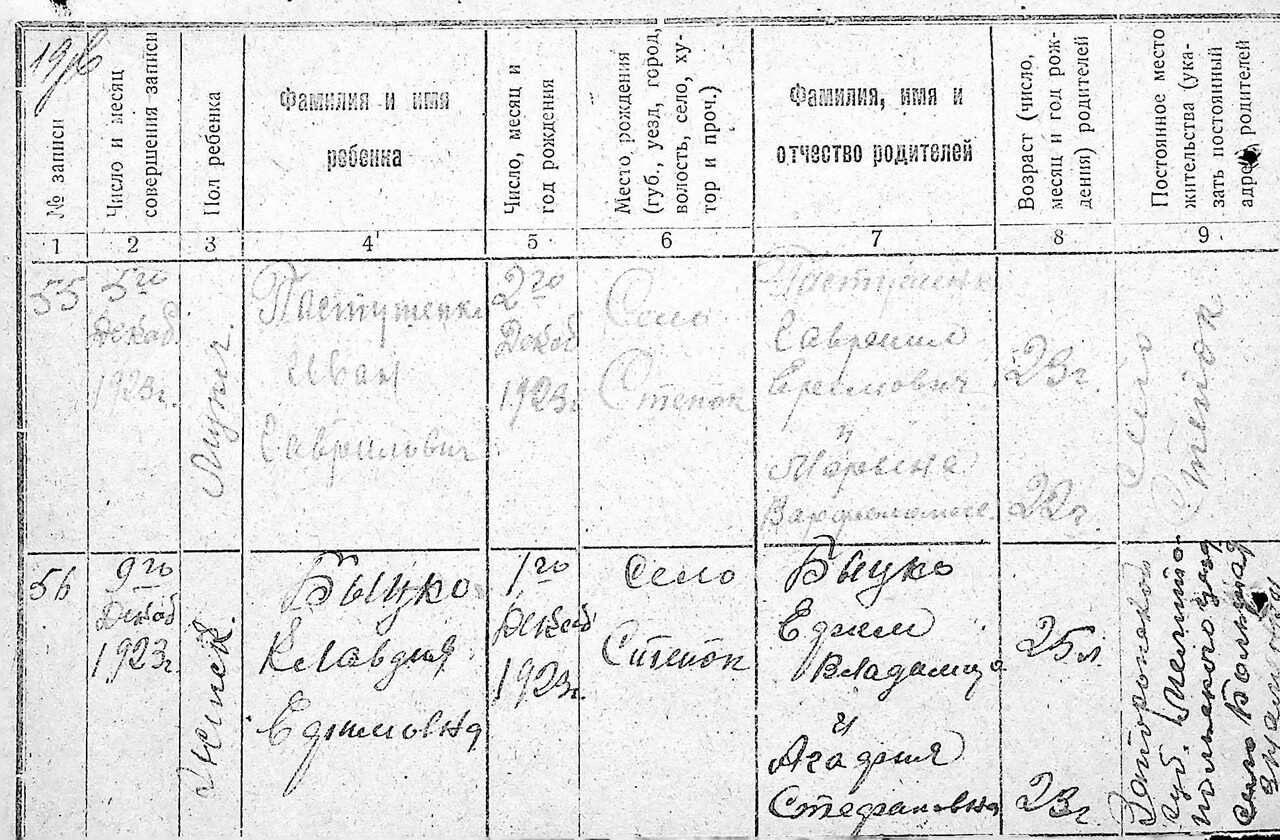 № записи
Число и месяц
совершения записи
Пол ребенка
Фамилия и имя
ребенка
Число, месяц и
год рождения
Место рождения
(губ., уезд, город,
волость, село, ху-
тор и проч.)
Фамилия, имя и
отчество родителей
Возраст (число,
месяц и год рож-
дения) родителей
Постоянное место
жительства (ука-
зать постоянный
адрес) родителей
1 2 3 4 5 6 7 8 9
55
5го
Декаб
1923г.
Мужс.
Пастушенк
Иван
Гаврилович
2го
Декаб
1923г.
Село
Степок
Гавриил
Ефимович
и
Марьяна
23г.
22г.
Село
Степок
56
9го
Декаб
1923г.
Женск.
Быцко
Клавдия
Ефимовна
1го
Декаб
1923г.
Село
Степок
Быцко
Ефим
и
Агафия
Стефановна
25л.
23г.
губ.
село